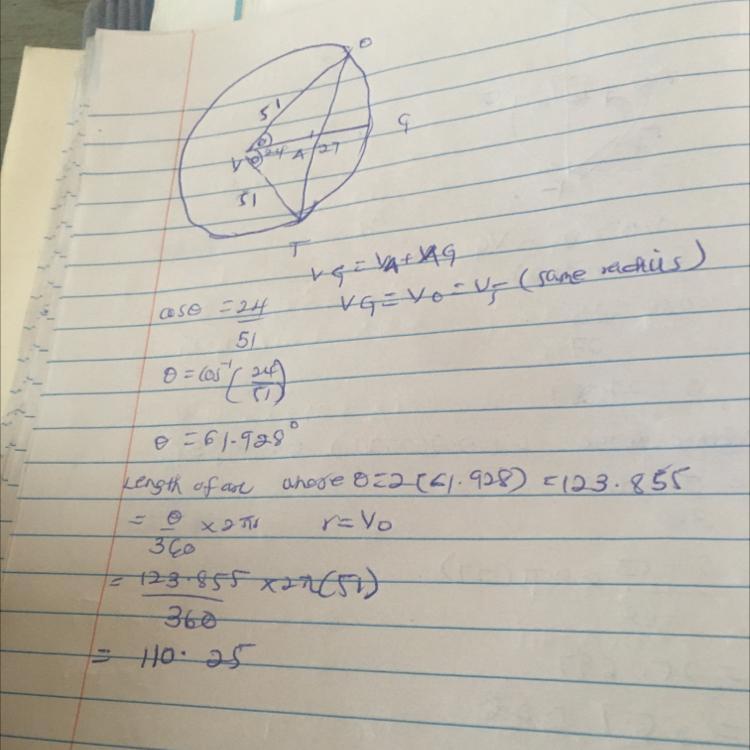 O
51
G
V θ 24 A 27
θ
51
T
VG = VA + AG
VG = VO = VT (same radius)
cosθ = 24/51
θ = cos⁻¹(24/51)
θ = 61.928°
Length of arc where θ = 2(61.928) = 123.855
= θ/360 × 2πr r = VO
= 123.855/360 × 2π(51)
= 110.25